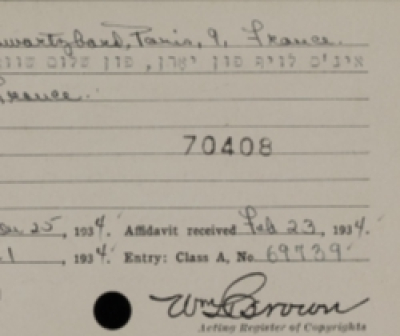 wartzbard, Paris, 9, France.
France.
70408
25, 1934. Affidavit received Feb 23, 1934.
1, 1934. Entry: Class A, No. 69739
Wm L Brown
Acting Register of Copyrights